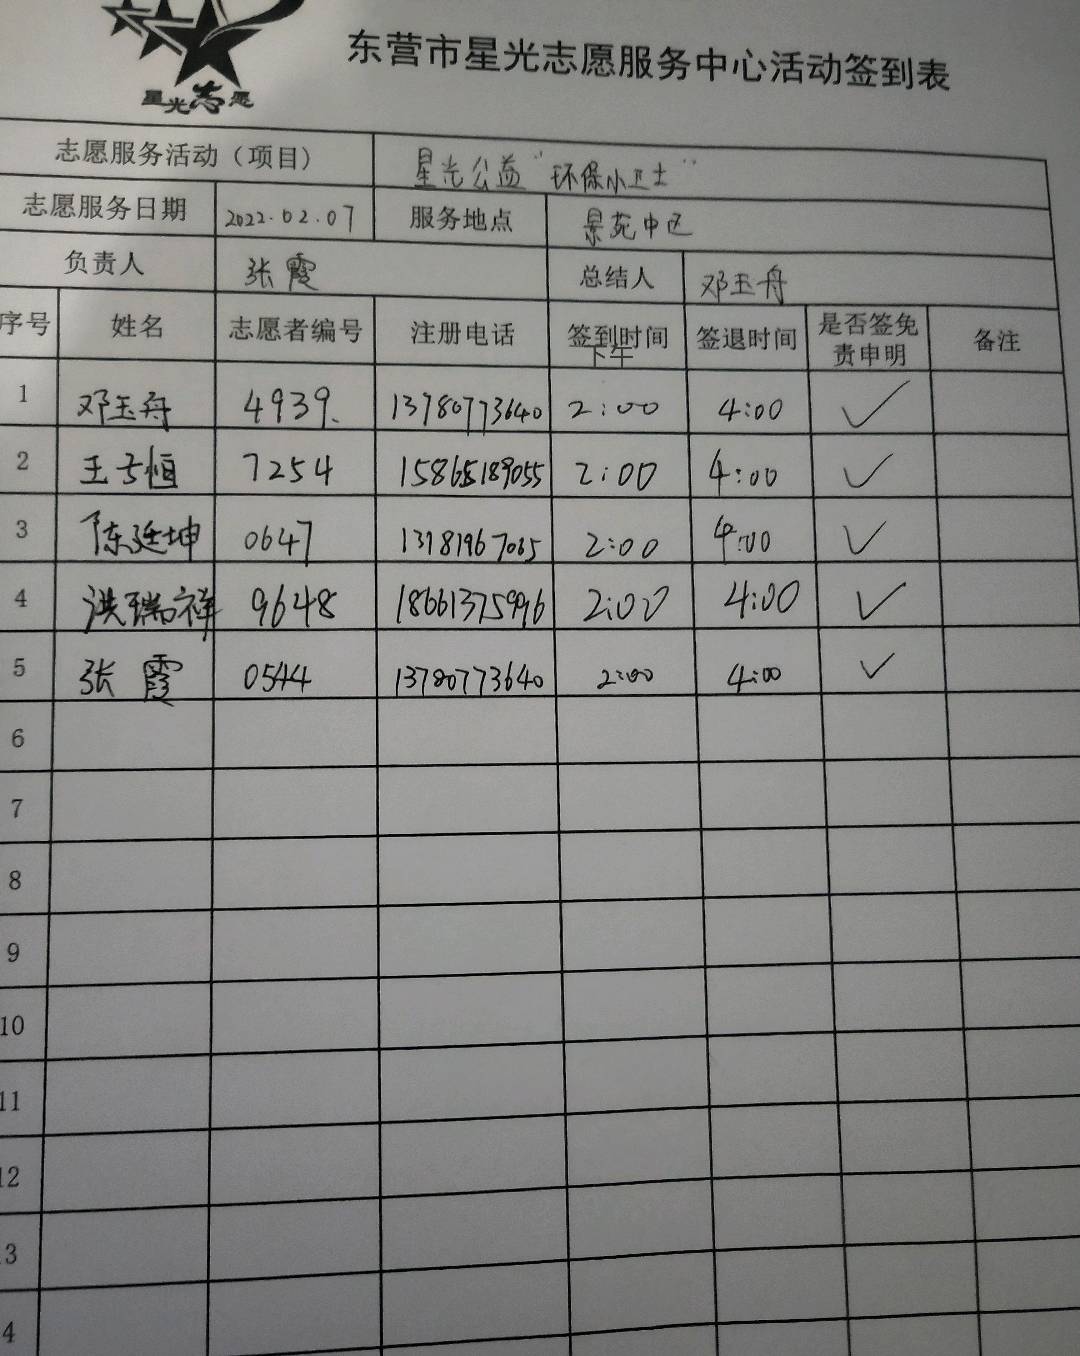 东营市星光志愿服务中心活动签到表
星光志愿
志愿服务活动（项目） 星光公益“环保小卫士”
志愿服务日期 2022.02.07 服务地点 景苑中区
负责人 张霞 总结人 邓玉舟
序号 姓名 志愿者编号 注册电话 签到时间 下午 签退时间 是否签免责申明 备注
1 邓玉舟 4939. 13780773640 2:00 4:00 ✓
2 王子恒 7254 15865189055 2:00 4:00 ✓
3 陈廷坤 0647 13181967065 2:00 4:00 ✓
4 洪瑞祥 9648 18661375996 2:00 4:00 ✓
5 张霞 0544 13780773640 2:00 4:00 ✓
6
7
8
9
10
11
12
3
4